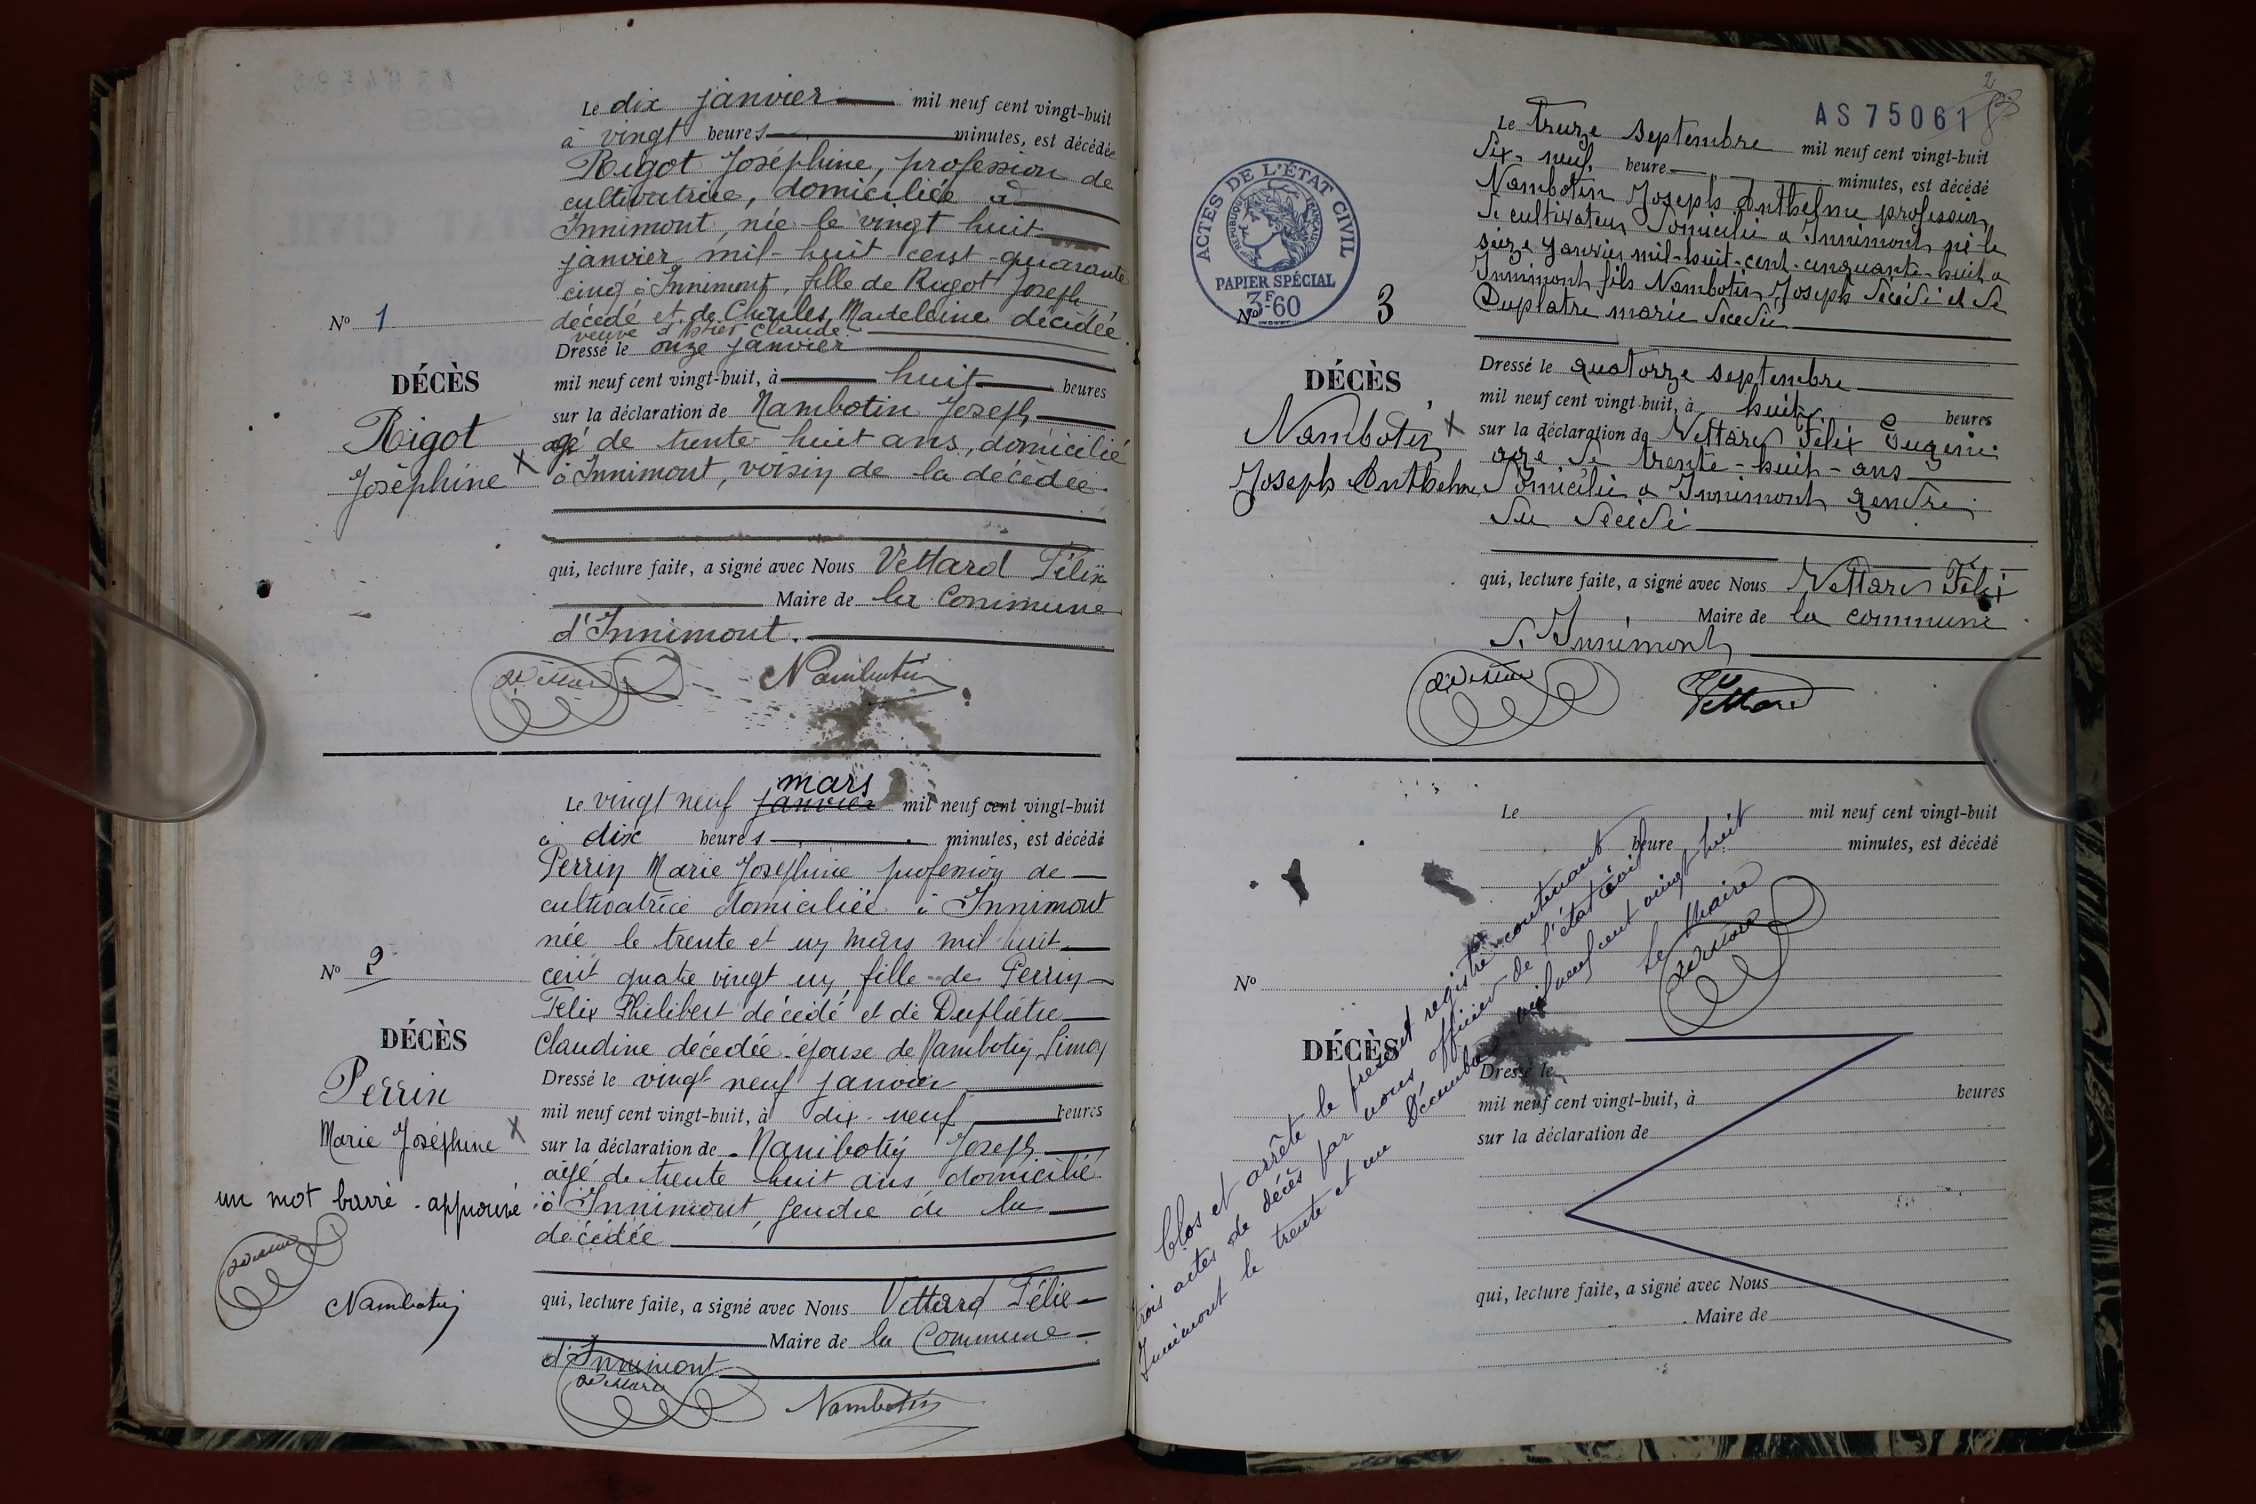 Le dix janvier mil neuf cent vingt-huit
à vingt heures minutes, est décédée
Rigot Joséphine, profession de
cultivatrice, domiciliée à
Innimont, née le vingt huit
janvier mil-huit-cent-quarante
cinq à Innimont, fille de Rigot Joseph
décédé et de Charles Madeleine décédée.
veuve Claude
Dressé le onze janvier
mil neuf cent vingt-huit, à huit heures
sur la déclaration de Nambotin Joseph
agé de trente huit ans, domicilié
à Innimont, voisin de la décédée.
qui, lecture faite, a signé avec Nous Vettard Félix
Maire de la Commune
d'Innimont.
Nambotin
No 1
DÉCÈS
Rigot
Joséphine X
mars
Le vingt neuf janvier mil neuf cent vingt-huit
à dix heures minutes, est décédé
Perrin Marie Joséphine profession de
cultivatrice domiciliée à Innimont
née le trente et un mars mil huit
cent quatre vingt un, fille de Perrin
Félix Philibert décédé et de Duplâtre
Claudine décédée épouse de Nambotin Simon
Dressé le vingt neuf janvier
mil neuf cent vingt-huit, à dix-neuf heures
sur la déclaration de Nambotin Joseph
agé de trente huit ans domicilié
à Innimont, gendre de la
décédée
qui, lecture faite, a signé avec Nous Vettard Félix
Maire de la Commune
d'Innimont
Nambotin
No 2
DÉCÈS
Perrin
Marie Joséphine X
un mot barré. approuvé
Nambotin
2
AS 75061
ACTES DE L'ÉTAT CIVIL
RÉPUBLIQUE FRANÇAISE
PAPIER SPÉCIAL
3F60
Le treize septembre mil neuf cent vingt-huit
dix-neuf heure minutes, est décédé
Nambotin Joseph Anthelme profession
de cultivateur domicilié a Innimont né le
seize janvier mil-huit-cent-cinquante-huit a
Innimont fils Nambotin Joseph décédé et de
Duplatre marie décédée
Dressé le quatorze septembre
mil neuf cent vingt-huit, à huit heures
sur la déclaration de Vettard Félix Eugène
age de trente-huit-ans
domicilié a Innimont gendre
du décédé
qui, lecture faite, a signé avec Nous Vettard Félix
Maire de la commune
d'Innimont
Vettard
No 3
DÉCÈS
Nambotin X
Joseph Anthelme
Le mil neuf cent vingt-huit
heure minutes, est décédé
No
DÉCÈS
Dressé le
mil neuf cent vingt-huit, à heures
sur la déclaration de
qui, lecture faite, a signé avec Nous
Maire de
Clos et arrêté le présent registre contenant
trois actes de décès par nous officier de l'état civil
Innimont le trente et un Décembre mil neuf cent vingt huit
Le Maire